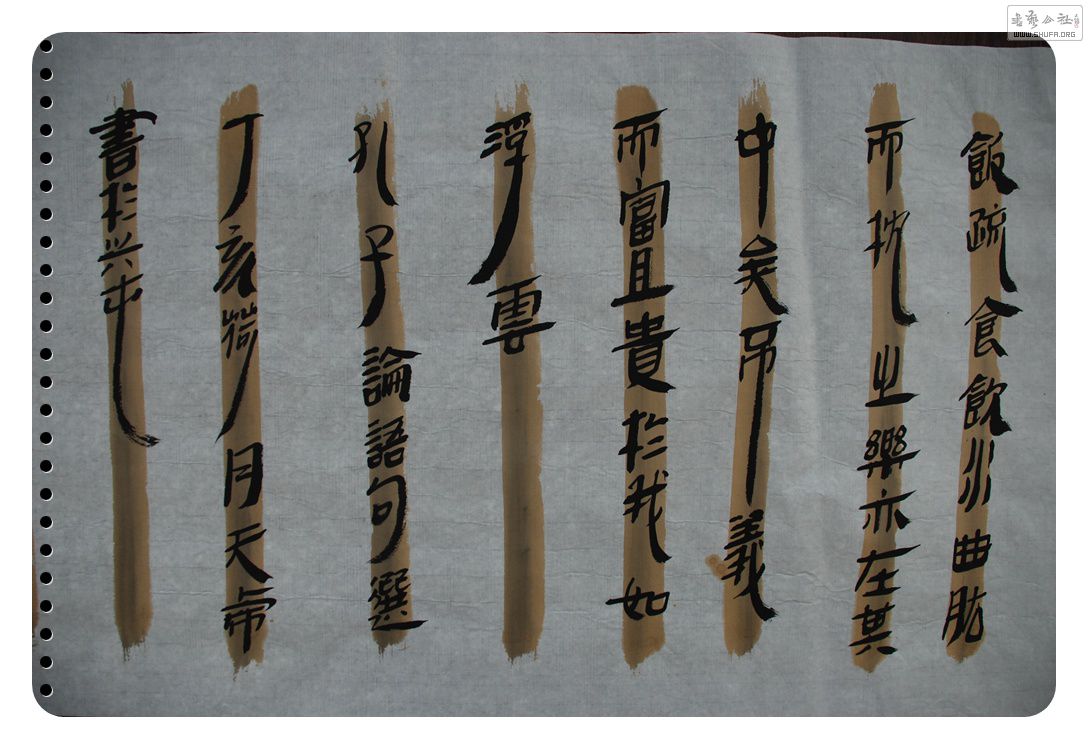 飯疏食飲水曲肱
而枕之樂亦在其
中矣不義
而富且貴於我如
浮雲
孔子論語句選
丁亥荷月天
書於兴
書藝公社
WWW.SHUFA.ORG